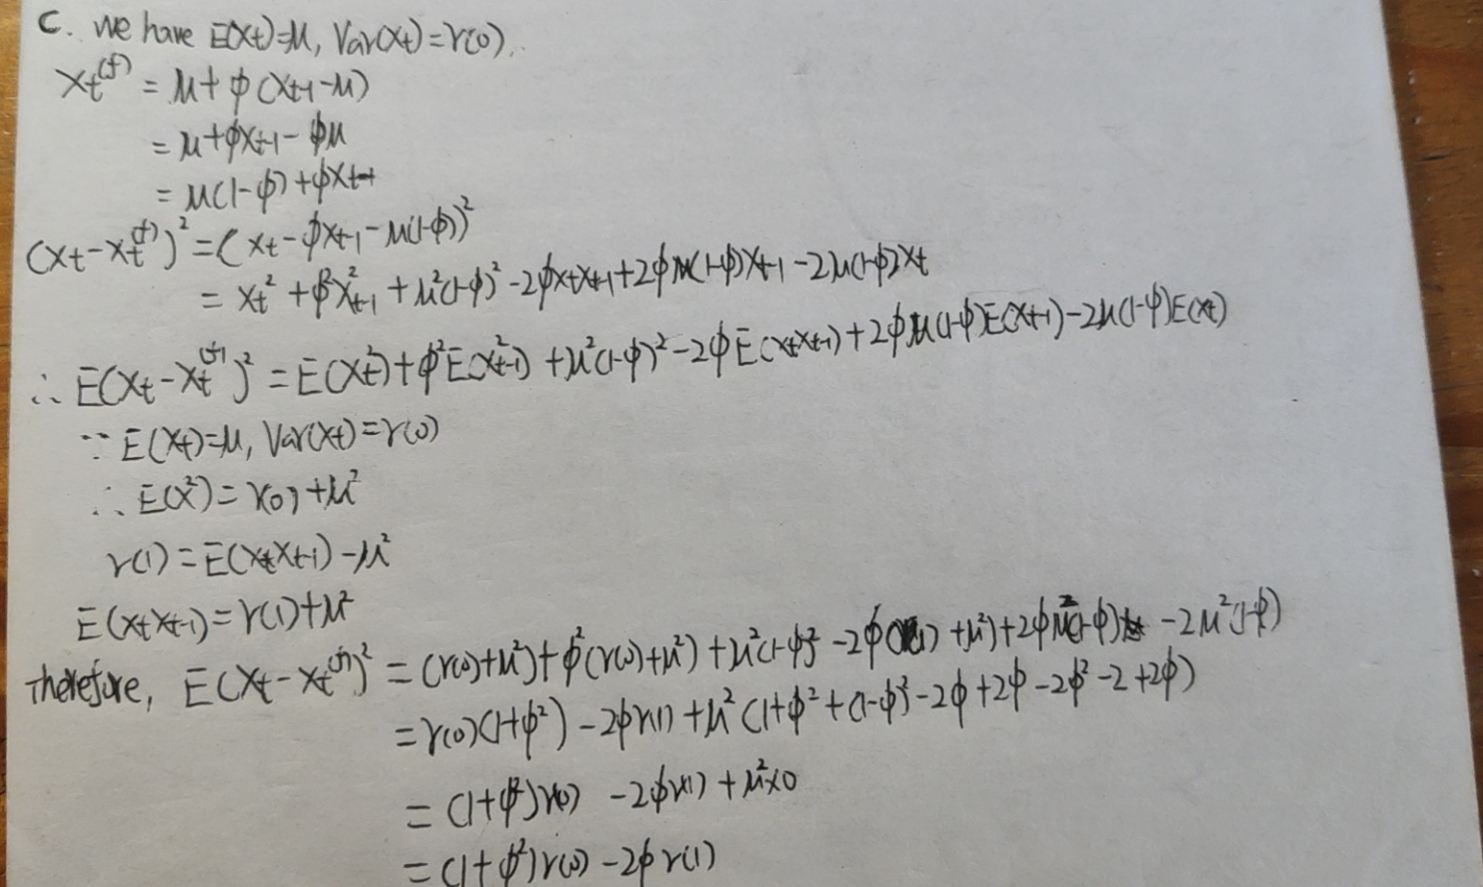 C. We have E(Xt)=μ, Var(Xt)=γ(0).
Xt^(f) = μ+ φ(Xt-1-μ)
= μ+φXt-1- φμ
= μ(1-φ)+φXt-1
(Xt-Xt^(f))² =(Xt-φXt-1-μ(1-φ))²
= Xt² +φ²X²t-1 +μ²(1-φ)² -2φXtXt-1+2φμ(1-φ)Xt-1 -2μ(1-φ)Xt
∴ E(Xt-Xt^(f))² = E(Xt²)+φ²E(X²t-1) +μ²(1-φ)² -2φE(XtXt-1)+2φμ(1-φ)E(Xt-1)-2μ(1-φ)E(Xt)
∵ E(Xt)=μ, Var(Xt)=γ(0)
∴ E(X²)= γ(0)+μ²
γ(1)=E(XtXt-1)-μ²
E(XtXt-1)=γ(1)+μ²
therefore, E(Xt-Xt^(f))² = (γ(0)+μ²)+φ²(γ(0)+μ²) +μ²(1-φ)² -2φ(γ(1)+μ²)+2φμ²(1-φ) -2μ²(1-φ)
=γ(0)(1+φ²) -2φγ(1) +μ²(1+φ²+(1-φ)²-2φ+2φ-2φ²-2+2φ)
= (1+φ²)γ(0) -2φγ(1) +μ²×0
= (1+φ²)γ(0) -2φγ(1)